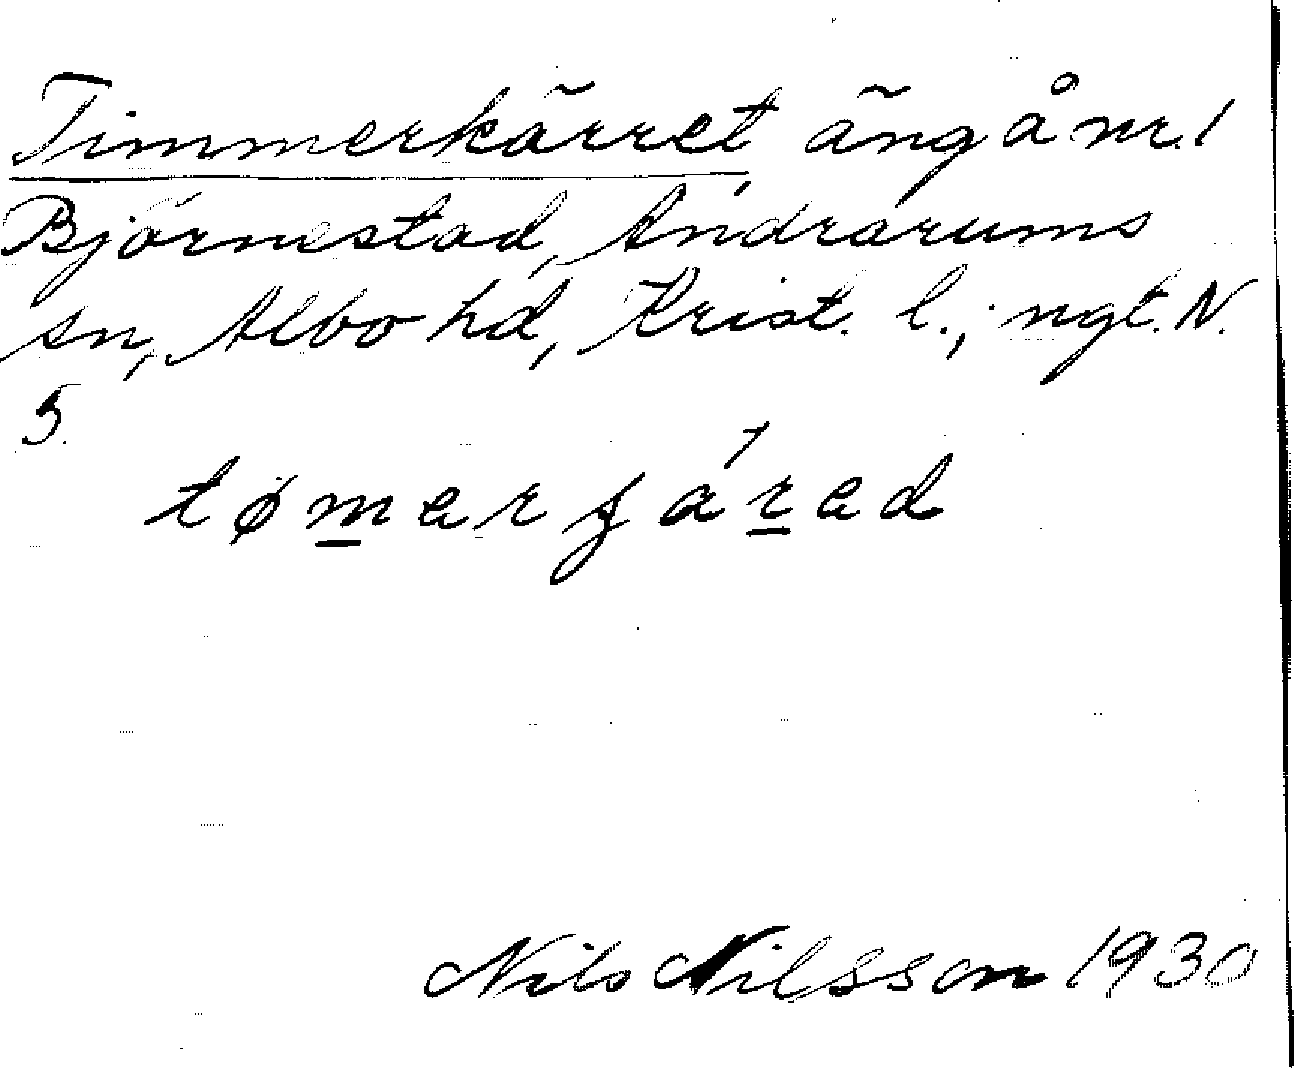 Timmerkärret, äng å nr. 1
Björnestad, Andrarums
sn, Albo hd, Krist. l.; ngt. N.
5.
tømerʃárad
Nils Nilsson 1930